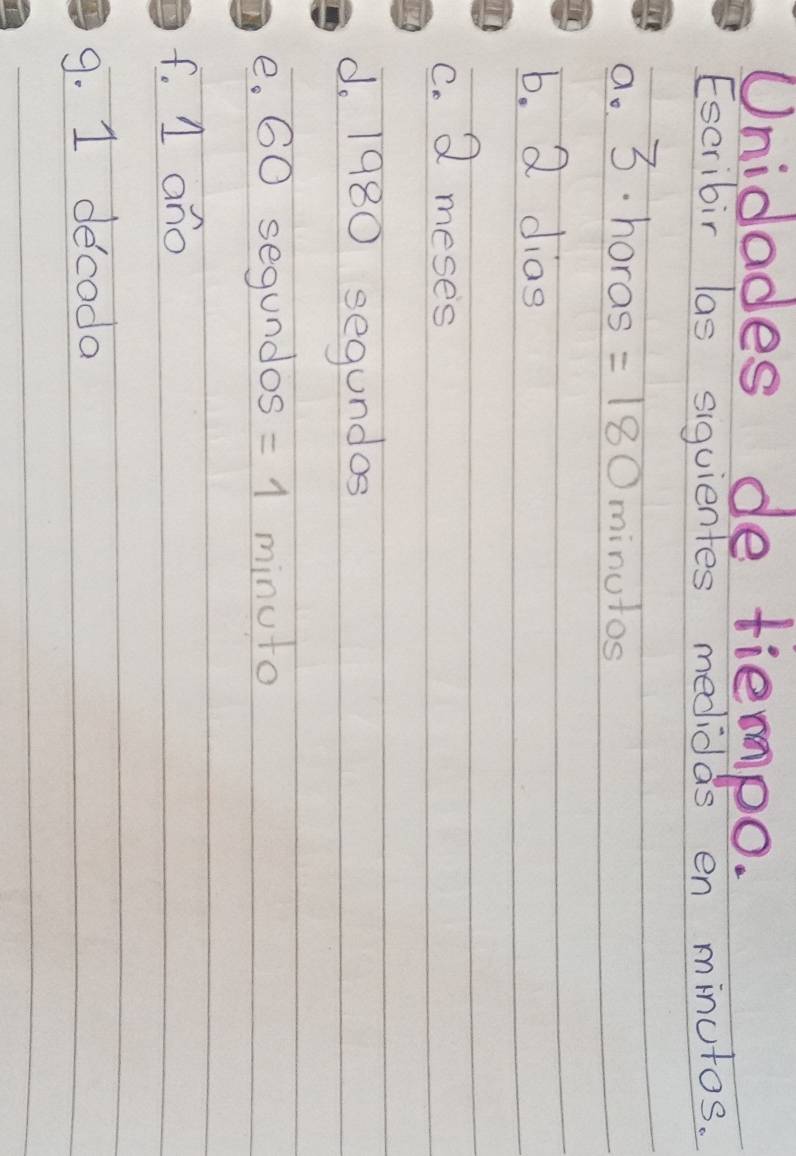 Unidades de tiempo.
Escribir las siguientes medidas en minutos.
a. 3 horas = 180 minutos
b. 2 días
c. 2 meses
d. 1980 segundos
e. 60 segundos = 1 minuto
f. 1 año
g. 1 década